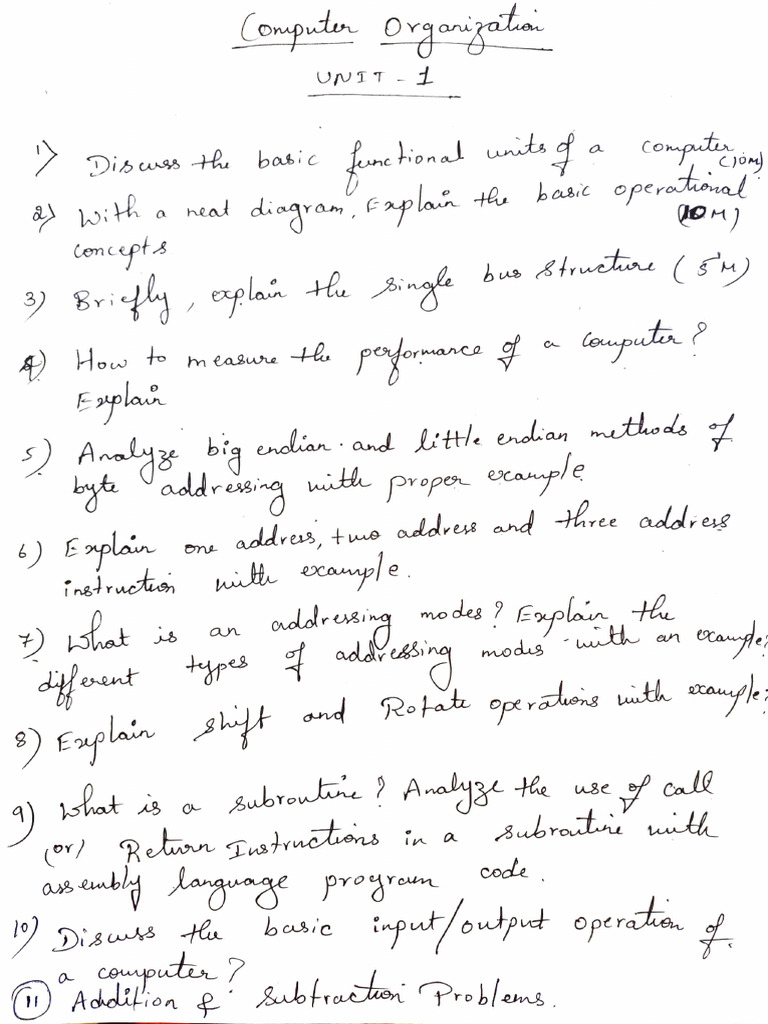 Computer Organization
UNIT - 1
1) Discuss the basic functional units of a computer (10M)
2) With a neat diagram, Explain the basic operational
concepts (10M)
3) Briefly, explain the single bus structure (5M)
4) How to measure the performance of a computer?
Explain
5) Analyze big endian and little endian methods of
byte addressing with proper example
6) Explain one address, two address and three address
instruction with example.
7) What is an addressing modes? Explain the
different types of addressing modes with an example?
8) Explain shift and Rotate operations with example?
9) What is a subroutine? Analyze the use of call
(or) Return Instructions in a subroutine with
assembly language program code.
10) Discuss the basic input/output operation of
a computer?
11 Addition & Subtraction Problems.